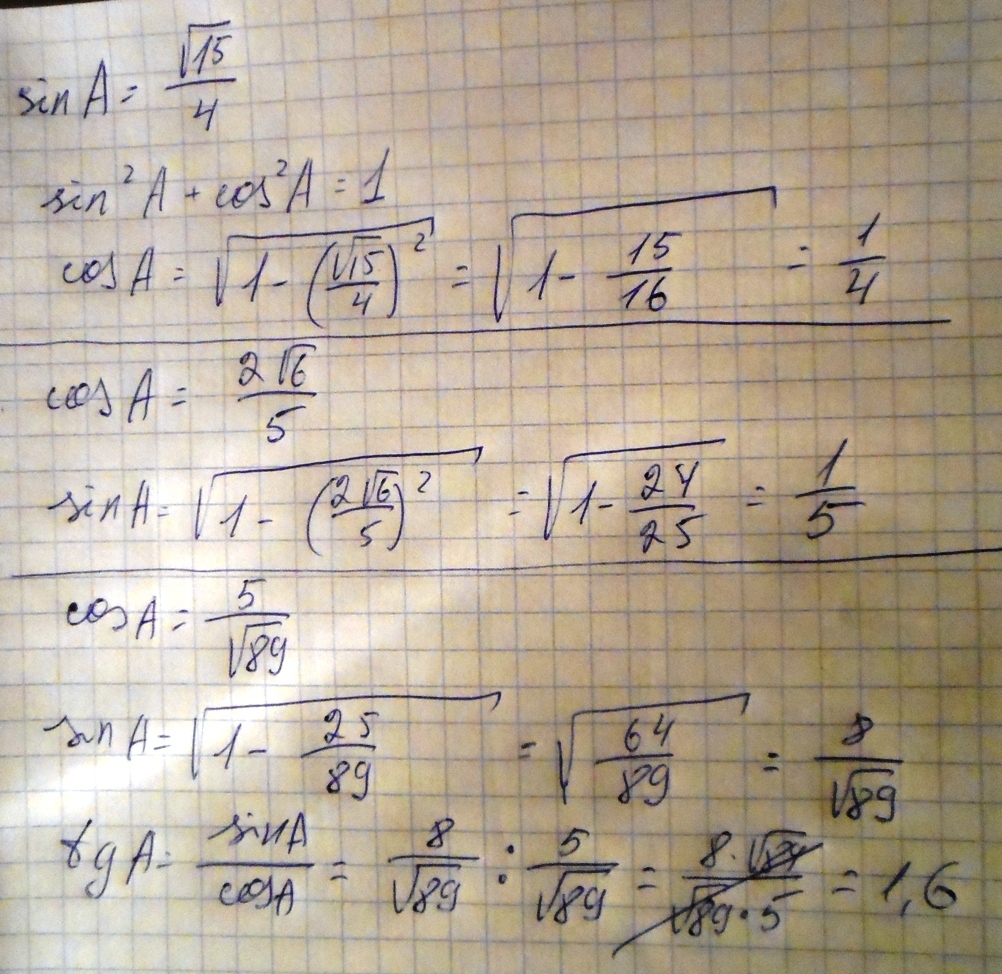 sin A = √15/4
sin²A + cos²A = 1
cos A = √(1 - (√15/4)²) = √(1 - 15/16) = 1/4
cos A = 2√6/5
sin A = √(1 - (2√6/5)²) = √(1 - 24/25) = 1/5
cos A = 5/√89
sin A = √(1 - 25/89) = √(64/89) = 8/√89
tg A = sin A/cos A = 8/√89 : 5/√89 = 8·√89/√89·5 = 1,6